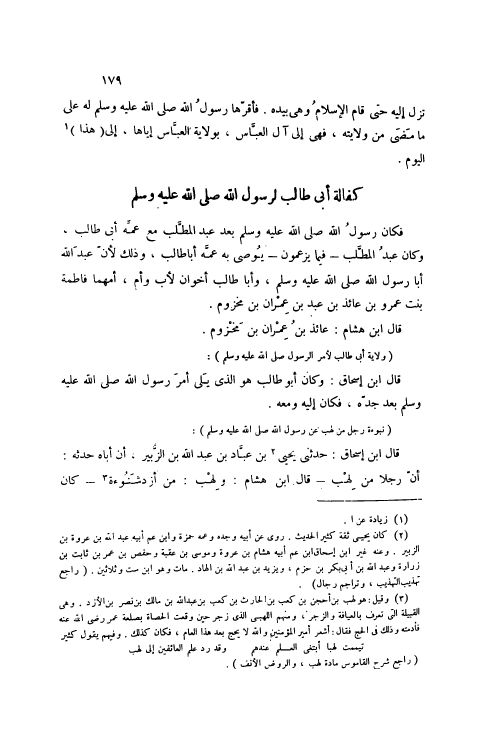 ١٧٩
تزل إليه حتى قام الإسلامُ وهى بيده . فأقرّها رسولُ الله صلى الله عليه وسلم له على
ما مَضَى من ولايته ، فهى إلى آل العبَّاس ، بولاية العبَّاس إياها ، إلى ( هذا )١
اليوم .
كفالة أبى طالب لرسول الله صلى الله عليه وسلم
فكان رسولُ الله صلى الله عليه وسلم بعد عبد المطَّلب مع عمِّه أبى طالب ،
وكان عبدُ المطَّلب – فيما يزعمون – يُوصى به عمَّه أباطالب ، وذلك لأنّ عبدَ الله
أبا رسول الله صلى الله عليه وسلم ، وأبا طالب أخوان لأب وأم ، أمهما فاطمة
بنت عمرو بن عائذ بن عبد بن عِمْران بن مخزوم .
قال ابن هشام : عائذ بنُ عِمْران بن مَخْزوم .
( ولاية أبى طالب لأمر الرسول صلى الله عليه وسلم ) :
قال ابن إسحاق : وكان أبو طالب هو الذى يَلى أمرَ رسول الله صلى الله عليه
وسلم بعد جدّه ، فكان إليه ومعه .
( نبوءة رجل من لهب عن رسول الله صلى الله عليه وسلم ) :
قال ابن إسحاق : حدثنى يحيى٢ بن عبَّاد بن عبد الله بن الزُّبير ، أن أباه حدثه :
أنّ رجلا من لِهْب – قال ابن هشام : ولِهْب : من أزدشَنُوءة٣ – كان
(١) زيادة عن ا .
(٢) كان يحيى ثقة كثير الحديث . روى عن أبيه وجده وعمه حمزة وابن عم أبيه عبد الله بن عروة بن
الزبير . وعنه غير ابن إسحاق ابن عم أبيه هشام بن عروة وموسى بن عقبة وحفص بن عمر بن ثابت بن
زرارة وعبد الله بن أبى بكر بن حزم ، ويزيد بن عبد الله بن الهاد . مات وهو ابن ست وثلاثين . ( راجع
تهذيب التهذيب ، وتراجم رجال ) .
(٣) وقيل : هو لهب بن أحجن بن كعب بن الحارث بن كعب بن عبدالله بن مالك بن نصر بن الأزد . وهى
القبيلة التى تعرف بالعيافة والزجر ، ومنهم اللهبى الذى زجر حين وقعت الحصاة بصلعة عمر رضى الله عنه
فأدمته وذلك فى الحج فقال : أشعر أمير المؤمنين والله لا يحج بعد هذا العام ، فكان كذلك . وفيهم يقول كثير
تيممت لهبا أبتغى العلم عندهم    وقد رد علم العائفين إلى لهب
( راجع شرح القاموس مادة لهب ، والروض الأنف ) .